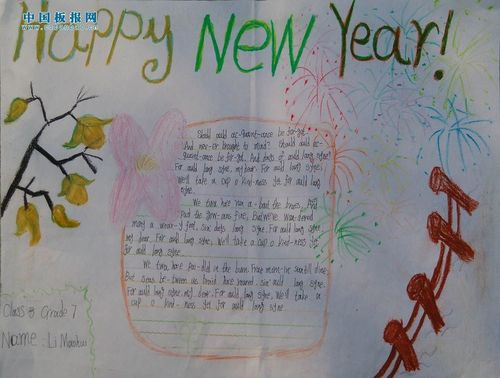 中国板报网
Happy New Year!
Should auld ac-quaint-ance be for-got
And nev-er brought to mind? Should auld ac-
quaint-ance be for-got. And days of auld lang syne?
For auld lang syne, my dear. For auld lang syne,
We'll take a cup o kind-ness yet for auld lang
syne.
We twa hae run a-bout the braes, And
But we've wan-dered
man-y a foot, Sin auld lang syne. For auld lang syne
my dear. For auld lang syne, We'll take a cup o kind-ness yet
for auld lang syne.
We twa hae in the burn From
But seas be-tween us braid hae sin auld lang syne.
For auld lang syne, my dear. For auld lang syne, We'll take a
cup o kind-ness yet for auld lang syne
Class 3 Grade 7
Name: Li